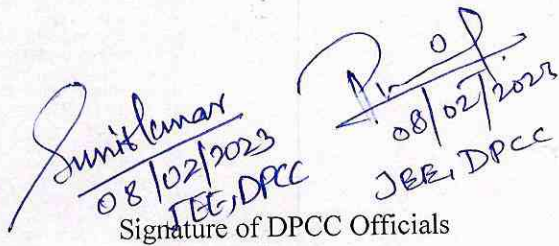 Sunit Kumar
08/02/2023
JEE, DPCC
08/02/2023
JEE, DPCC
Signature of DPCC Officials